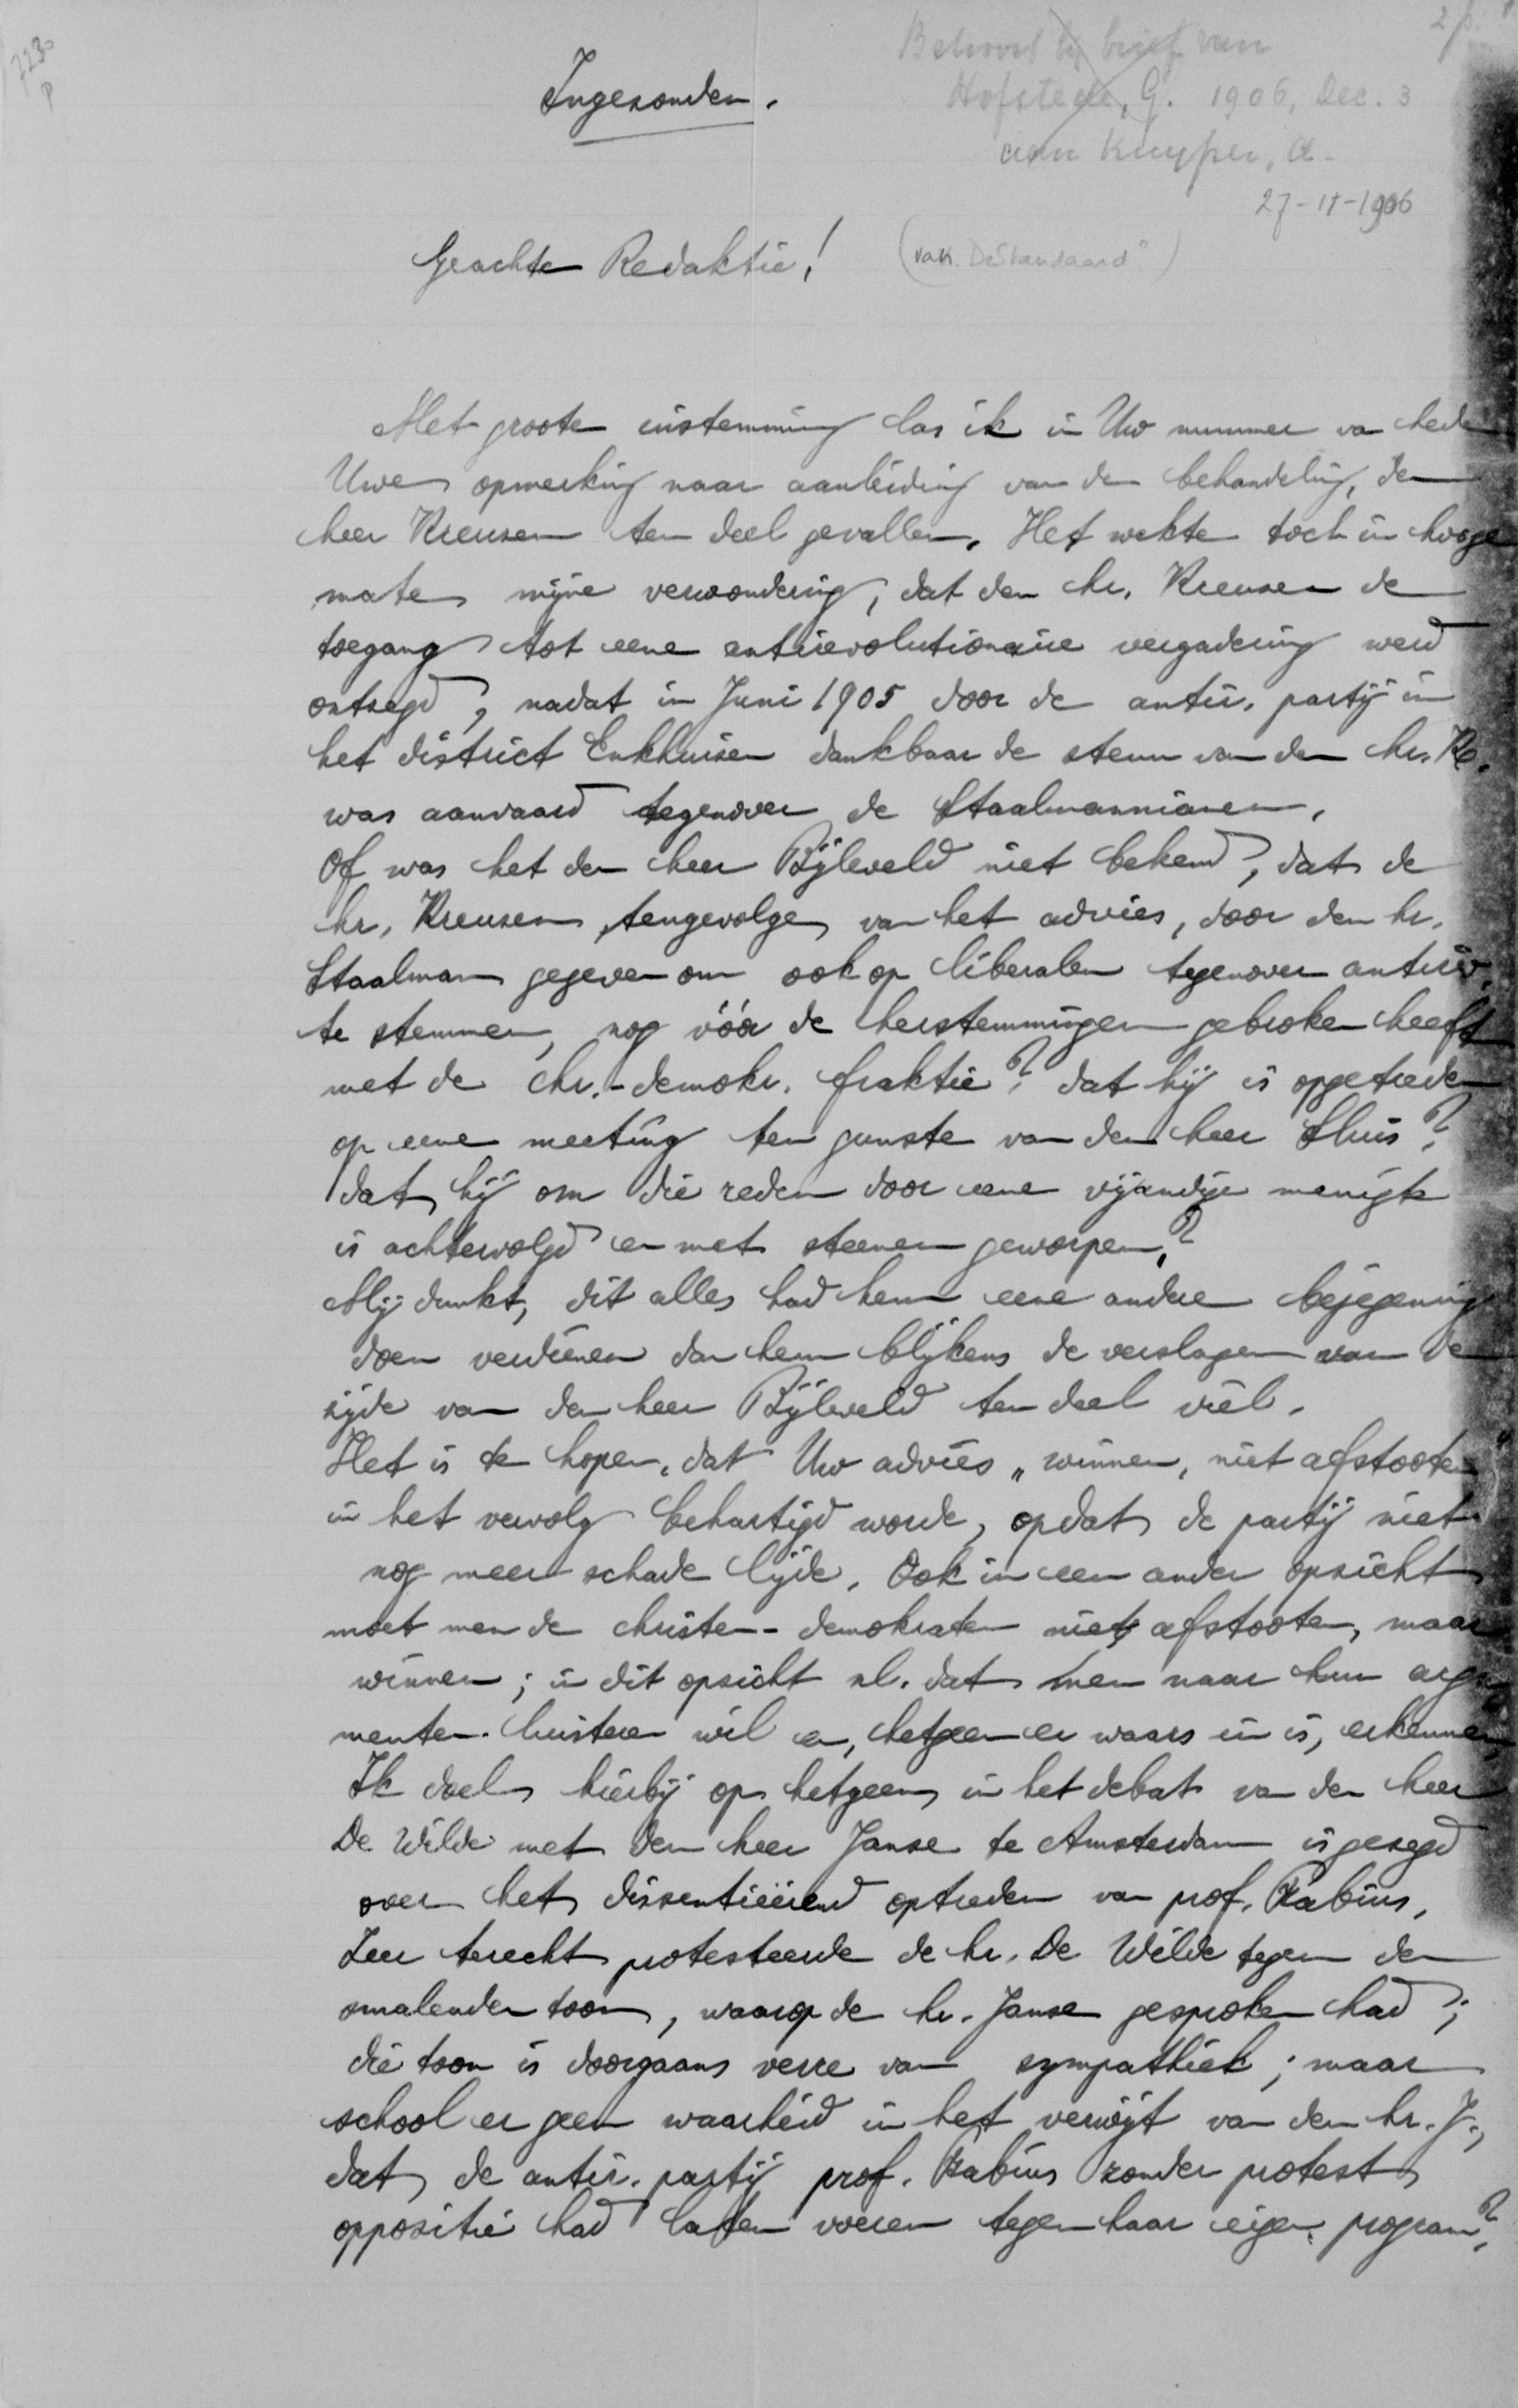 7230
P
2 p.
Behoort bij brief van
Hofstede, G. 1906, Dec. 3
aan Kuyper, A.
27-11-1906
Ingezonden.
Geachte Redaktie!
(van De Standaard?)
Met groote instemming las ik in Uw nummer van heden
Uwe opmerking naar aanleiding van de behandeling, den
heer Kreuzen ten deel gevallen. Het wekte toch in hooge
mate mijne verwondering, dat den hr. Kreuzen de
toegang tot eene antirevolutionaire vergadering werd
ontzegd, nadat in Juni 1905 door de antir. partij in
het district Enkhuizen dankbaar de steun van den hr. K.
was aanvaard tegenover de Staalmannianen.
Of was het den heer Bijleveld niet bekend, dat de
hr. Kreuzen, tengevolge van het advies, door den hr.
Staalman gegeven om ook op liberalen tegenover antirev.
te stemmen, nog vóór de herstemmingen gebroken heeft
met de chr.-demokr. fraktie? dat hij is opgetreden
op eene meeting ten gunste van den heer Sluis?
dat hij om die reden door eene vijandige menigte
is achtervolgd en met steenen geworpen?
Mij dunkt, dit alles had hem eene andere bejegening
doen verdienen dan hem blijkens de verslagen van de
zijde van den heer Bijleveld ten deel viel.
Het is te hopen, dat Uw advies „winnen, niet afstooten"
in het vervolg behartigd worde, opdat de partij niet
nog meer schade lijde. Ook in een ander opzicht
moet men de christen-demokraten niet afstooten, maar
winnen; in dit opzicht nl. dat men naar hun argu-
menten luisteren wil en, hetgeen er waars in is, erkennen,
Ik doel hierbij op hetgeen in het debat van den heer
De Wilde met den heer Janse te Amsterdam is gezegd
over het dissentieerend optreden van prof. Fabius.
Zeer terecht protesteerde de hr. De Wilde tegen den
smalenden toon, waarop de hr. Janse gesproken had;
die toon is doorgaans verre van sympathiek; maar
school er geen waarheid in het verwijt van den hr. J.,
dat de antir. partij prof. Fabius zonder protest
oppositie had laten voeren tegen haar eigen program?